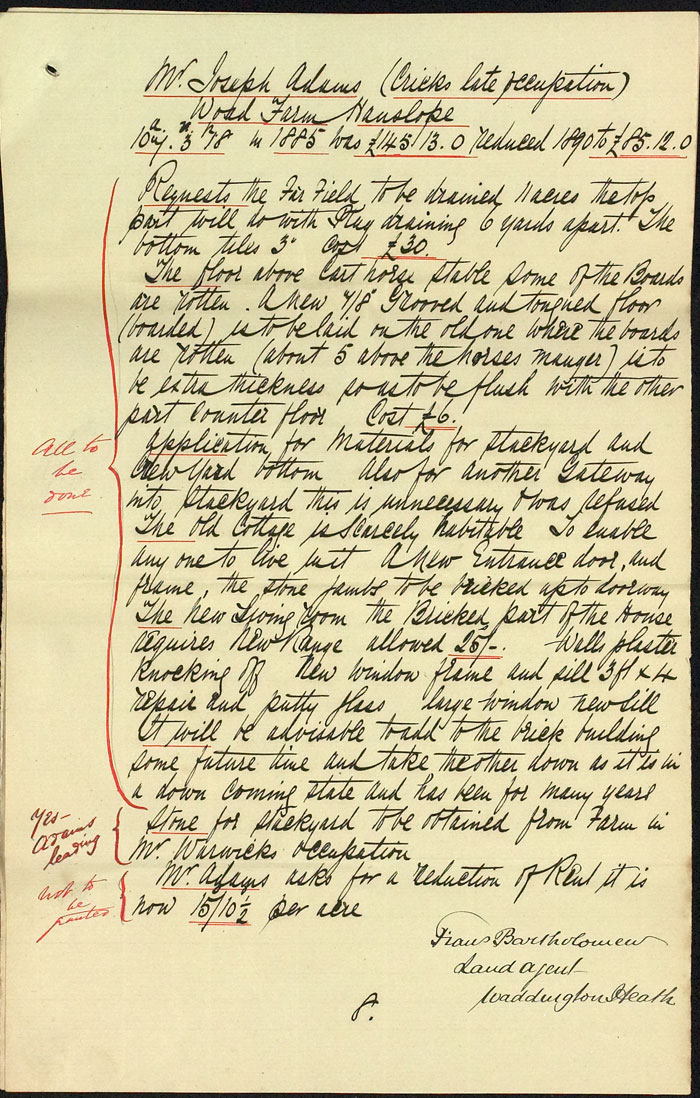 Mr. Joseph Adams (Cricks late occupation)
Woad Farm Hanslope
in 1885 was £145/13.0 reduced 1890 to £85.12.0
Requests the Far Field to be drained 11 acres the top
part will do with Plug draining 6 yards apart. The
bottom tiles 3" Cost £30.
The floor above Cart horse stable some of the Boards
are rotten. A New 7/8 Grooved and tongued floor
(boarded) is to be laid on the old one where the boards
are rotten (about 5 above the horses manger) is to
be extra thickness so as to be flush with the other
part Counter floor Cost £6.
Application for Materials for stackyard and
Crew Yard bottom Also for another Gateway
into Stackyard this is unnecessary & was refused
The old Cottage is Scarcely habitable To enable
any one to live in it A New Entrance door, and
frame, the stone jambs to be bricked up to doorway
The New Living room the Bricked part of the House
requires New Range allowed 25/-. Walls plaster
knocking off New window frame and sill 3ft x 4
repair and putty glass large window new Sill
It will be advisable to add to the brick building
some future time and take the other down as it is in
a down coming state and has been for many years
Stone for stackyard to be obtained from Farm in
Mr. Warwicks occupation
Mr. Adams asks for a reduction of Rent it is
now 15/10½ per acre
Frans Bartholomew
Land agent
Waddington Heath
8.
All to
be
done
Yes-
Adams
leading
Not to
be
granted